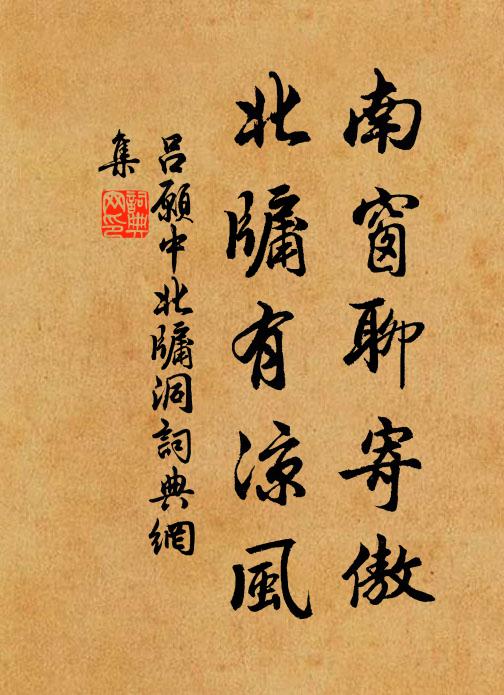 南窗聊寄傲
北牖有凉風
吕願中北牖洞詞典網
集
詞典
网印